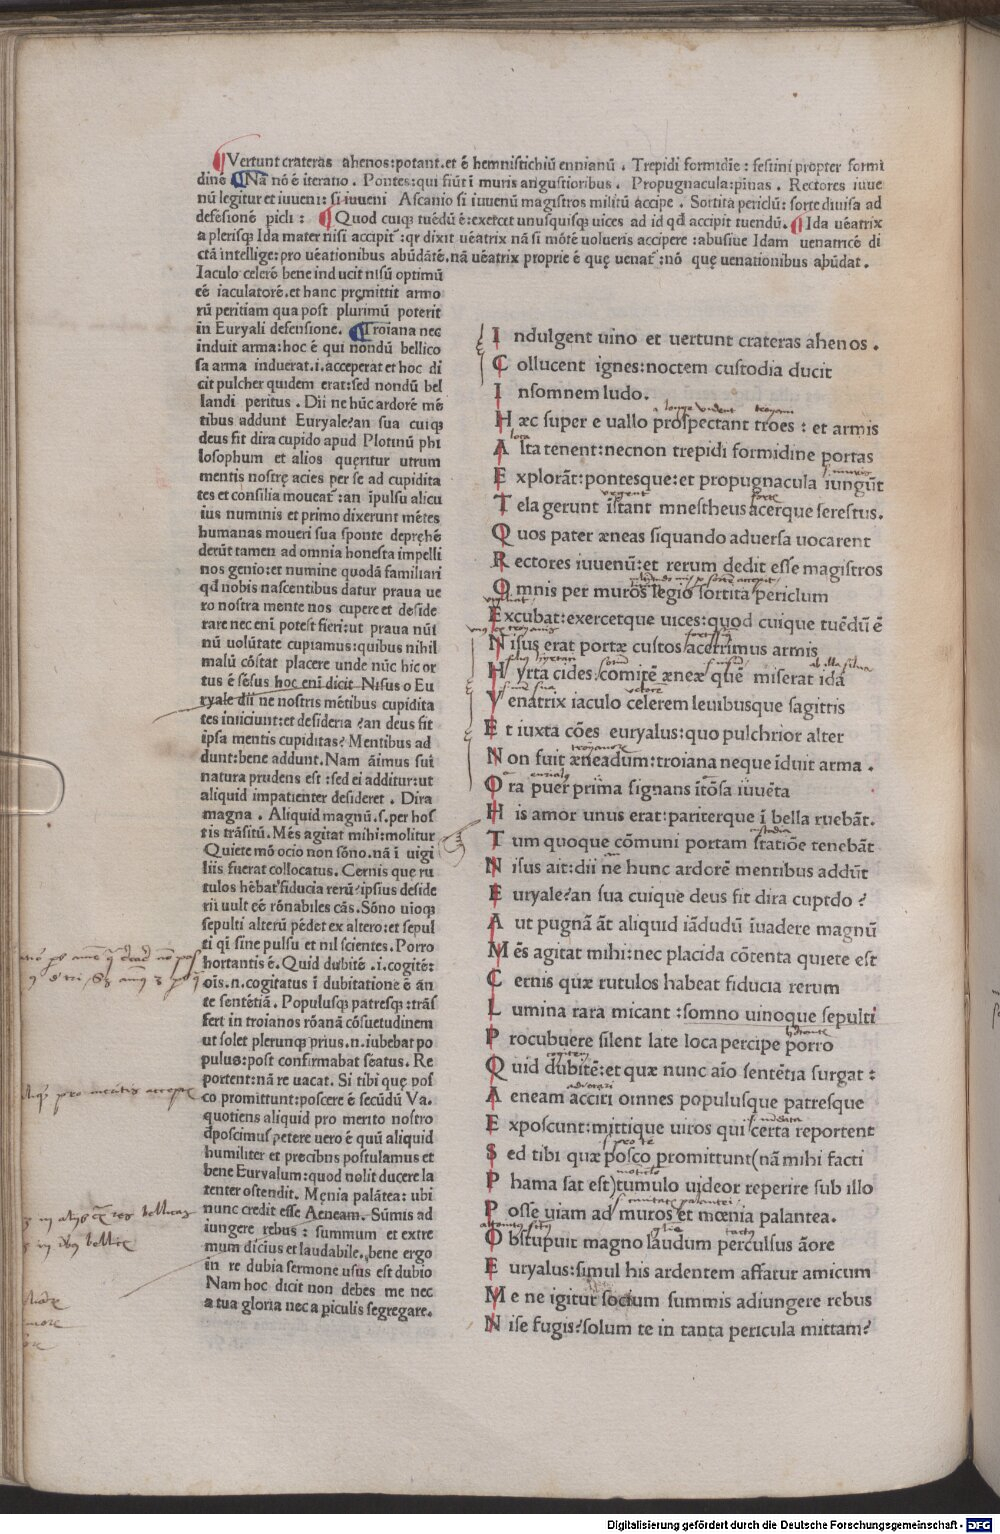 Vertunt crateras ahenos:potant.et ē hemnistichiū ennianū . Trepidi formidīe : festini propter formi
dinē Nā nō ē iteratio . Pontes:qui fiūt ī muris angustioribus . Propugnacula:pīnas . Rectores iuue
nū legitur et iuueni: si iuueni Ascanio si iuuenū magistros militū accipe . Sortita periclū: sorte diuisa ad
defesionē picli : Quod cuiqꝫ tuēdū ē:exercet unusquisqꝫ uices ad id qđ accipit tuendū. Ida uēatrix
a plerisqꝫ Ida mater nisi accipit᷑ :qr dixit uēatrix nā si mōtē volueris accipere :abusiue Idam uenatricē di
ctā intellige:pro uēationibus abūdātē.nā uēatrix proprie ē quę uenat᷑ :nō quę uenationibus abūdat .
Iaculo celerē bene inducit nisū optimū
eē iaculatorē.et hanc pręmittit armo
rū peritiam qua post plurimū poterit
in Euryali defensione. Troiana nec
induit arma:hoc ē qui nondū bellico
sa arma induerat.i.acceperat et hoc di
cit pulcher quidem erat:sed nondū bel
landi peritus . Dii ne hūc ardorē mē
tibus addunt Euryale?an sua cuiqꝫ
deus fit dira cupido apud Plotinū phi
losophum et alios quęritur utrum
mentis nostrę acies per se ad cupidita
tes et consilia moueat᷑ :an īpulsu alicu
ius numinis et primo dixerunt mētes
humanas moueri sua sponte depręhē
derūt tamen ad omnia honesta impelli
nos genio:et numine quodā familiari
qđ nobis nascentibus datur praua ue
ro nostra mente nos cupere et deside
rare nec enī potest fieri:ut praua nūī
nū uolūtate cupiamus:quibus nihil
malū cōstat placere unde nūc hic or
tus ē sēsus hoc enī dicit Nisus o Eu
ryale dii ne nostris mētibus cupidita
tes iniciunt:et desideria ?an deus fit
ipsa mentis cupiditas? Mentibus ad
dunt:bene addunt. Nam āimus sui
natura prudens est :sed ei additur:ut
aliquid impatienter desideret . Dira
magna . Aliquid magnū.s.per hos
tis trāsitū. Mēs agitat mihi:molitur
Quiete mō ocio non sōno.nā ī uigi
liis fuerat collocatus. Cernis que ru
tulos hēbat᷑ fiducia rerū?ipsius deside
rii uult eē rōnabiles cās. Sōno uīoqꝫ
sepulti alterū pēdet ex altero:et sepul
ti qī sine pulsu et nil scientes. Porro
hortantis ē. Quid dubitē .i.cogitē:
ois.n.cogitatus ī dubitatione ē ān
te sentētiā . Populusqꝫ patresqꝫ :trās
fert in troianos rōanā cōsuetudinem
ut solet plerunqꝫ prius.n.iubebat po
pulus:post confirmabat sēatus. Re
portent:nā re uacat. Si tibi quę pos
co promittunt:poscere ē secūdū Va.
quotiens aliquid pro merito nostro
dposcimus petere uero ē quū aliquid
humiliter et precibns postulamus et
bene Euryalum:quod nolit ducere la
tenter ostendit. Męnia palātea: ubi
nunc credit esse Aeneam. Sūmis ad
iungere rebus : summum et extre
mum dicius et laudabile. bene ergo
in re dubia sermone usus est dubio
Nam hoc dicit non debes me nec
a tua gloria nec a piculis segregare.
I ndulgent uino et uertunt crateras ahenos .
C ollucent ignes:noctem custodia ducit
I nsomnem ludo.
a longe vident
H æc super e uallo prospectant troes : et armis
loca
A lta tenent:necnon trepidi formidine portas
E xplorāt:pontesque:et propugnacula iungūt
T ela gerunt īstant mnestheus acerque serestus.
Q uos pater æneas siquando aduersa uocarent
R ectores iuuenū:et rerum dedit esse magistros
O mnis per muros legio sortita periclum
E xcubat:exercetque uices:quod cuique tuēdū ē
N isus erat portæ custos acerrimus armis
H yrtacides:comitē æneæ quē miserat ida
V enatrix iaculo celerem leuibusque sagittis
E t iuxta cōes euryalus:quo pulchrior alter
N on fuit æneadum:troiana neque īduit arma .
O ra puer prima signans ītōsa iuuēta
H is amor unus erat:pariterque ī bella ruebāt.
custodia
T um quoque cōmuni portam statiōe tenebāt
N isus ait:dii ne hunc ardorē mentibus addūt
E uryale?an sua cuique deus fit dira cupıdo ?
A ut pugnā āt aliquid iādudū īuadere magnū
M ēs agitat mihi:nec placida cōtenta quiete est
C ernis quæ rutulos habeat fiducia rerum
L umina rara micant :somno uinoque sepulti
P rocubuere silent late loca percipe porro
Q uid dubitē:et quæ nunc aīo sentētia surgat :
A eneam acciri omnes populusque patresque
E xposcunt:mittique uiros qui certa reportent
s pro te
S ed tibi quæ posco promittunt(nā mihi facti
P hama sat est)tumulo uideor reperire sub illo
P osse uiam ad muros et mœnia palantea.
O bstupuit magno laudum perculsus āore
E uryalus:simul his ardentem affatur amicum
M e ne igitur socium summis adiungere rebus
N ise fugis?solum te in tanta pericula mittam?
Digitalisierung gefördert durch die Deutsche Forschungsgemeinschaft - DFG